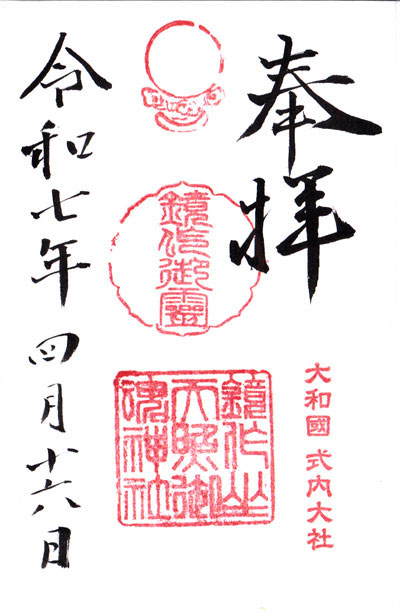 奉拝
大和國 式内大社
鏡作御靈
鏡作坐
天照御
魂神社
令和七年 四月十六日